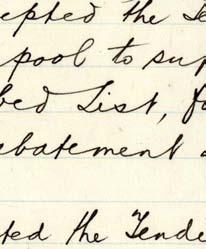 epted the Te
pool to sup
bed List, fo
batement a
ted the Tende